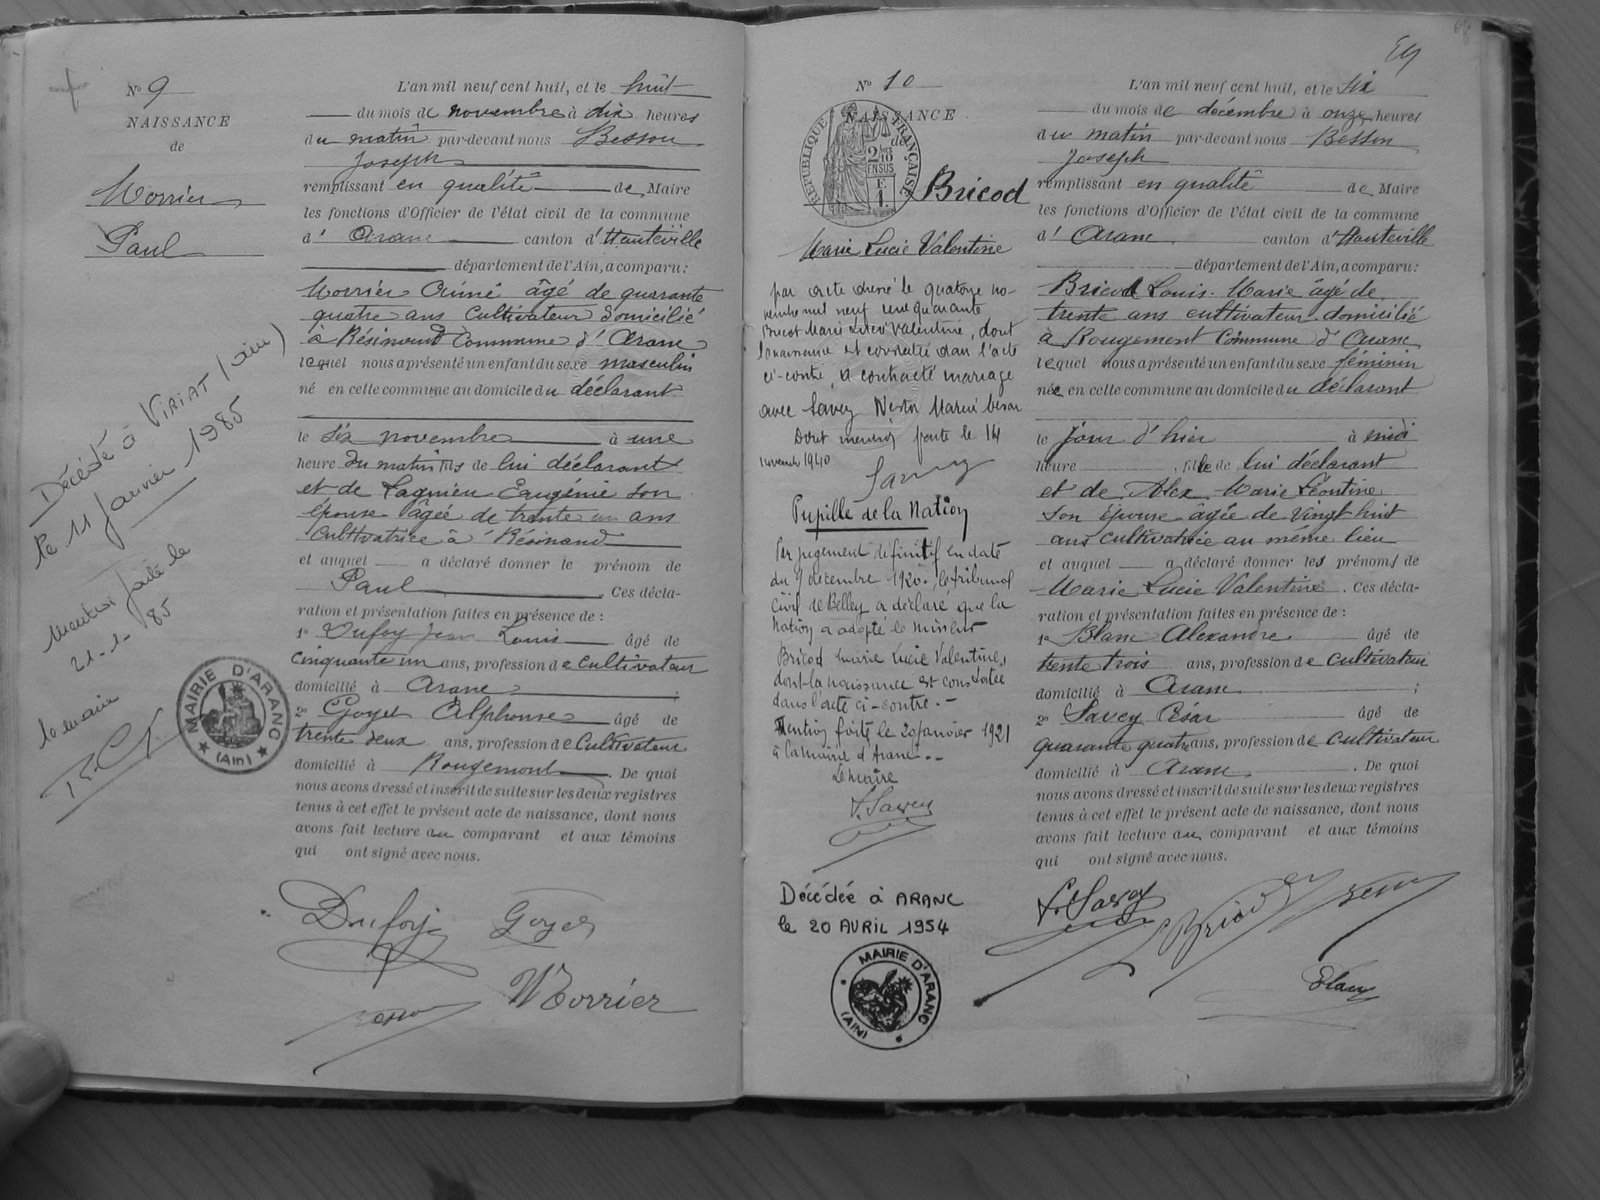 Nº 9
NAISSANCE
de
Morrier
Paul
Décédé à VIRIAT (ain)
le 11 janvier 1985
Mention faite le
21-1-85
le maire
MAIRIE D'ARANC
(Ain)
L'an mil neuf cent huit, et le huit
du mois de novembre à dix heures
du matin par-devant nous Besson
Joseph
remplissant en qualité de Maire
les fonctions d'Officier de l'état civil de la commune
d' Aranc canton d'Hauteville
département de l'Ain, a comparu:
Morrier Aimé âgé de quarante
quatre ans cultivateur domicilié
à Résinand Commune d'Aranc
lequel nous a présenté un enfant du sexe masculin
né en cette commune au domicile du déclarant
le six novembre à une
heure du matin fils de lui déclarant
et de Lagnieu Eugénie son
épouse âgée de trente un ans
cultivatrice à Résinand
et auquel a déclaré donner le prénom de
Paul. Ces décla-
ration et présentation faites en présence de :
1º Dufoy Jean Louis âgé de
cinquante un ans, profession de cultivateur
domicilié à Aranc ;
2º Goyet Alphonse âgé de
trente deux ans, profession de cultivateur
domicilié à Rougemont. De quoi
nous avons dressé et inscrit de suite sur les deux registres
tenus à cet effet le présent acte de naissance, dont nous
avons fait lecture au comparant et aux témoins
qui ont signé avec nous.
Dufoy Goyet
Morrier
Nº 10
NAISSANCE
de
RÉPUBLIQUE FRANÇAISE
Bricod
Marie Lucie Valentine
par acte dressé le quatorze no-
vembre mil neuf cent quarante
Bricod Marie Lucie Valentine, dont
la naissance est constatée dans l'acte
ci-contre, a contracté mariage
avec Savey Nestor Marius César
Dont mention faite le 14
novembre 1940
Savey
Pupille de la Nation
Par jugement définitif en date
du 9 décembre 1920, le tribunal
civil de Belley a déclaré que la
Nation a adopté le mineur
Bricod Marie Lucie Valentine,
dont la naissance est constatée
dans l'acte ci-contre.-
Mention faite le 20 janvier 1921
à la mairie d'Aranc.-
Le maire
Savey
Décédée à ARANC
le 20 AVRIL 1954
MAIRIE D'ARANC
(AIN)
L'an mil neuf cent huit, et le six
du mois de décembre à onze heures
du matin par-devant nous Besson
Joseph
remplissant en qualité de Maire
les fonctions d'Officier de l'état civil de la commune
d' Aranc canton d'Hauteville
département de l'Ain, a comparu:
Bricod Louis-Marie âgé de
trente ans cultivateur domicilié
à Rougemont Commune d'Aranc
lequel nous a présenté un enfant du sexe féminin
née en cette commune au domicile du déclarant
le jour d'hier à midi
heure, fille de lui déclarant
et de Alex Marie Léontine
son épouse âgée de vingt huit
ans cultivatrice au même lieu
et auquel a déclaré donner les prénoms de
Marie Lucie Valentine. Ces décla-
ration et présentation faites en présence de :
1º Blanc Alexandre âgé de
trente trois ans, profession de cultivateur
domicilié à Aranc ;
2º Savey César âgé de
quarante quatre ans, profession de cultivateur
domicilié à Aranc. De quoi
nous avons dressé et inscrit de suite sur les deux registres
tenus à cet effet le présent acte de naissance, dont nous
avons fait lecture au comparant et aux témoins
qui ont signé avec nous.
Savey Bricod
Blanc